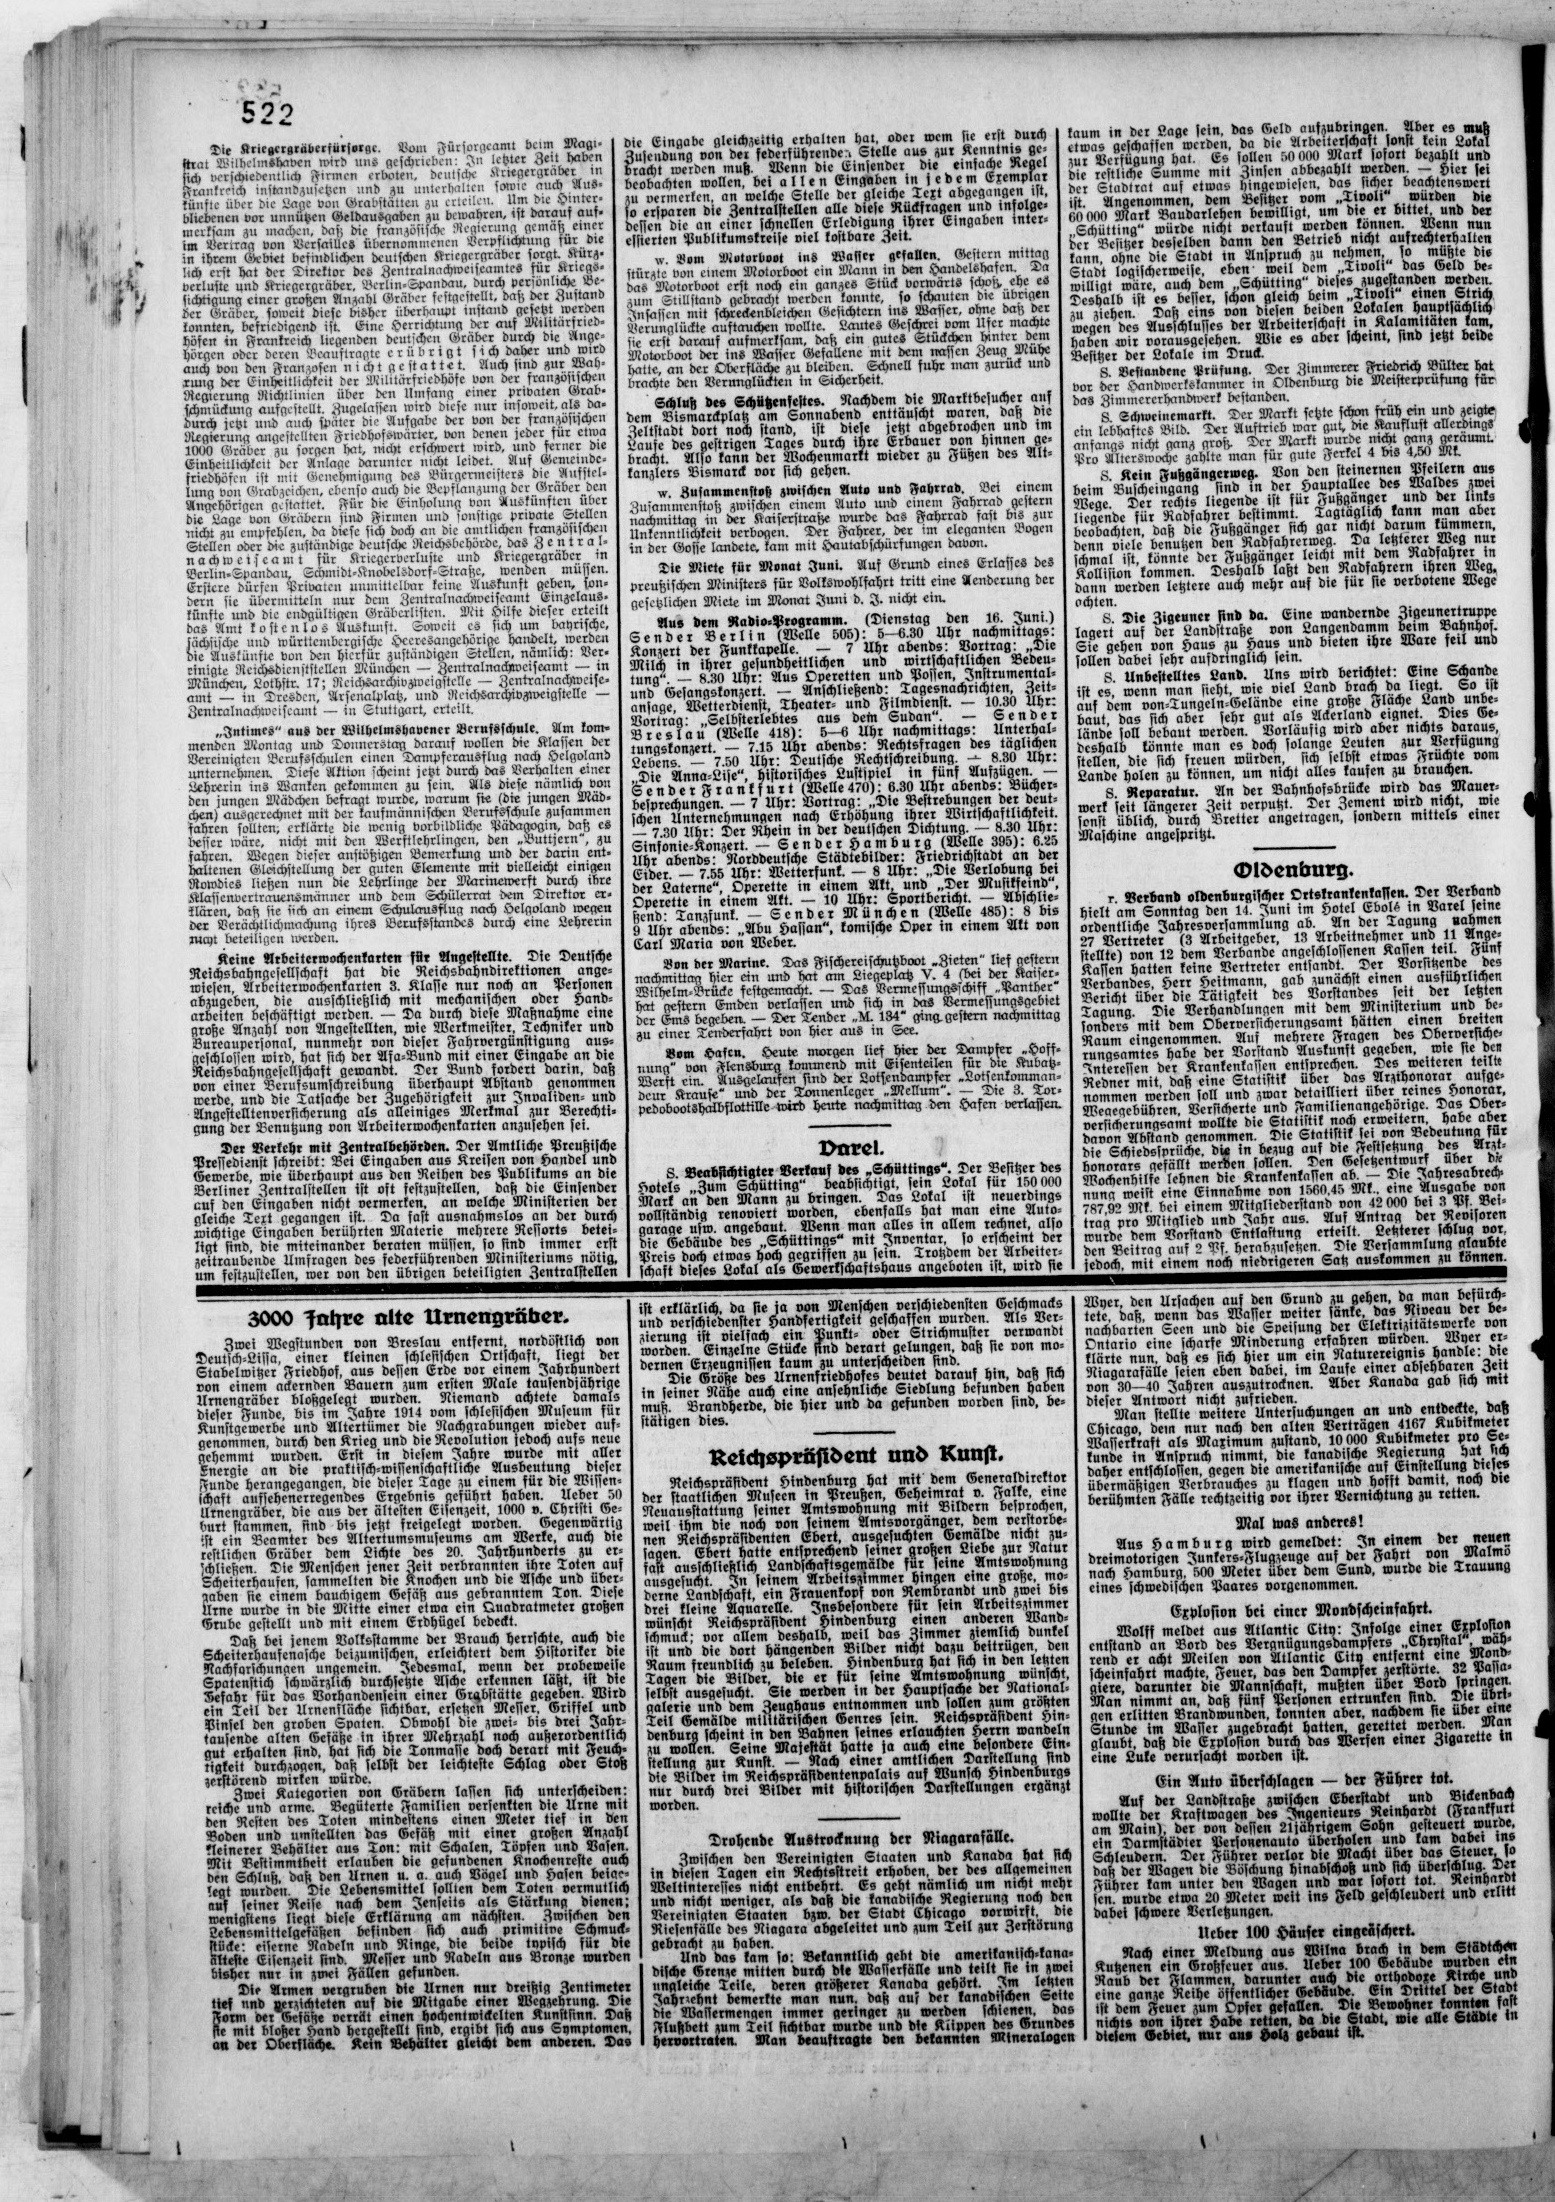 522
Die Kriegergräberfürsorge. Vom Fürsorgeamt beim Magi-
strat Wilhelmshaven wird uns geschrieben: In letzter Zeit haben
sich verschiedentlich Firmen erboten, deutsche Kriegergräber in
Frankreich instandzusetzen und zu unterhalten sowie auch Aus-
künfte über die Lage von Grabstätten zu erteilen. Um die Hinter-
bliebenen vor unnützen Geldausgaben zu bewahren, ist darauf auf-
merksam zu machen, daß die französische Regierung gemäß einer
im Vertrag von Versailles übernommenen Verpflichtung für die
in ihrem Gebiet befindlichen deutschen Kriegergräber sorgt. Kürz-
lich erst hat der Direktor des Zentralnachweiseamtes für Kriegs-
verluste und Kriegergräber, Berlin-Spandau, durch persönliche Be-
sichtigung einer großen Anzahl Gräber festgestellt, daß der Zustand
der Gräber, soweit diese bisher überhaupt instand gesetzt werden
konnten, befriedigend ist. Eine Herrichtung der auf Militärfried-
höfen in Frankreich liegenden deutschen Gräber durch die Ange-
hörgen oder deren Beauftragte erübrigt sich daher und wird
auch von den Franzosen nicht gestattet. Auch sind zur Wah-
rung der Einheitlichkeit der Militärfriedhöfe von der französischen
Regierung Richtlinien über den Umfang einer privaten Grab-
schmückung aufgestellt. Zugelassen wird diese nur insoweit, als da-
durch jetzt und auch später die Aufgabe der von der französischen
Regierung angestellten Friedhofswärter, von denen jeder für etwa
1000 Gräber zu sorgen hat, nicht erschwert wird, und ferner die
Einheitlichkeit der Anlage darunter nicht leidet. Auf Gemeinde-
friedhöfen ist mit Genehmigung des Bürgermeisters die Aufstel-
lung von Grabzeichen, ebenso auch die Bepflanzung der Gräber den
Angehörigen gestattet. Für die Einholung von Auskünften über
die Lage von Gräbern sind Firmen und sonstige private Stellen
nicht zu empfehlen, da diese sich doch an die amtlichen französischen
Stellen oder die zuständige deutsche Reichsbehörde, das Zentral-
nachweiseamt für Kriegerverluste und Kriegergräber in
Berlin-Spandau, Schmidt-Knobelsdorf-Straße, wenden müssen.
Erstere dürfen Privaten unmittelbar keine Auskunft geben, son-
dern sie übermitteln nur dem Zentralnachweiseamt Einzelaus-
künfte und die endgültigen Gräberlisten. Mit Hilfe dieser erteilt
das Amt kostenlos Auskunft. Soweit es sich um bayrische,
sächsische und württembergische Heeresangehörige handelt, werden
die Auskünfte von den hierfür zuständigen Stellen, nämlich: Ver-
einigte Reichsdienststellen München — Zentralnachweiseamt — in
München, Lothstr. 17; Reichsarchivzweigstelle — Zentralnachweise-
amt — in Dresden, Arsenalplatz, und Reichsarchivzweigstelle —
Zentralnachweiseamt — in Stuttgart, erteilt.
„Intimes“ aus der Wilhelmshavener Berufsschule. Am kom-
menden Montag und Donnerstag darauf wollen die Klassen der
Vereinigten Berufsschulen einen Dampferausflug nach Helgoland
unternehmen. Diese Aktion scheint jetzt durch das Verhalten einer
Lehrerin ins Wanken gekommen zu sein. Als diese nämlich von
den jungen Mädchen befragt wurde, warum sie (die jungen Mäd-
chen) ausgerechnet mit der kaufmännischen Berufsschule zusammen
fahren sollten; erklärte die wenig vorbildliche Pädagogin, daß es
besser wäre, nicht mit den Werftlehrlingen, den „Buttjern“, zu
fahren. Wegen dieser anstößigen Bemerkung und der darin ent-
haltenen Gleichstellung der guten Elemente mit vielleicht einigen
Rowdies ließen nun die Lehrlinge der Marinewerft durch ihre
Klassenvertrauensmänner und dem Schülerrat dem Direktor er-
klären, daß sie sich an einem Schulausflug nach Helgoland wegen
der Verächtlichmachung ihres Berufsstandes durch eine Lehrerin
nicht beteiligen werden.
Keine Arbeiterwochenkarten für Angestellte. Die Deutsche
Reichsbahngesellschaft hat die Reichsbahndirektionen ange-
wiesen, Arbeiterwochenkarten 3. Klasse nur noch an Personen
abzugeben, die ausschließlich mit mechanischen oder Hand-
arbeiten beschäftigt werden. — Da durch diese Maßnahme eine
große Anzahl von Angestellten, wie Werkmeister, Techniker und
Bureaupersonal, nunmehr von dieser Fahrvergünstigung aus-
geschlossen wird, hat sich der Afa-Bund mit einer Eingabe an die
Reichsbahngesellschaft gewandt. Der Bund fordert darin, daß
von einer Berufsumschreibung überhaupt Abstand genommen
werde, und die Tatsache der Zugehörigkeit zur Invaliden- und
Angestelltenversicherung als alleiniges Merkmal zur Berechti-
gung der Benutzung von Arbeiterwochenkarten anzusehen sei.
Der Verkehr mit Zentralbehörden. Der Amtliche Preußische
Pressedienst schreibt: Bei Eingaben aus Kreisen von Handel und
Gewerbe, wie überhaupt aus den Reihen des Publikums an die
Berliner Zentralstellen ist oft festzustellen, daß die Einsender
auf den Eingaben nicht vermerken, an welche Ministerien der
gleiche Text gegangen ist. Da fast ausnahmslos an der durch
wichtige Eingaben berührten Materie mehrere Ressorts betei-
ligt sind, die miteinander beraten müssen, so sind immer erst
zeitraubende Umfragen des federführenden Ministeriums nötig,
um festzustellen, wer von den übrigen beteiligten Zentralstellen
die Eingabe gleichzeitig erhalten hat, oder wem sie erst durch
Zusendung von der federführenden Stelle aus zur Kenntnis ge-
bracht werden muß. Wenn die Einsender die einfache Regel
beobachten wollen, bei allen Eingaben in jedem Exemplar
zu vermerken, an welche Stelle der gleiche Text abgegangen ist,
so ersparen die Zentralstellen alle diese Rückfragen und infolge-
dessen die an einer schnellen Erledigung ihrer Eingaben inter-
essierten Publikumskreise viel kostbare Zeit.
w. Vom Motorboot ins Wasser gefallen. Gestern mittag
stürzte von einem Motorboot ein Mann in den Handelshafen. Da
das Motorboot erst noch ein ganzes Stück vorwärts schoß, ehe es
zum Stillstand gebracht werden konnte, so schauten die übrigen
Insassen mit schreckenbleichen Gesichtern ins Wasser, ohne daß der
Verunglückte auftauchen wollte. Lautes Geschrei vom Ufer machte
sie erst darauf aufmerksam, daß ein gutes Stückchen hinter dem
Motorboot der ins Wasser Gefallene mit dem nassen Zeug Mühe
hatte, an der Oberfläche zu bleiben. Schnell fuhr man zurück und
brachte den Verunglückten in Sicherheit.
Schluß des Schützenfestes. Nachdem die Marktbesucher auf
dem Bismarckplatz am Sonnabend enttäuscht waren, daß die
Zeltstadt dort noch stand, ist diese jetzt abgebrochen und im
Laufe des gestrigen Tages durch ihre Erbauer von hinnen ge-
bracht. Also kann der Wochenmarkt wieder zu Füßen des Alt-
kanzlers Bismarck vor sich gehen.
w. Zusammenstoß zwischen Auto und Fahrrad. Bei einem
Zusammenstoß zwischen einem Auto und einem Fahrrad gestern
nachmittag in der Kaiserstraße wurde das Fahrrad fast bis zur
Unkenntlichkeit verbogen. Der Fahrer, der im eleganten Bogen
in der Gosse landete, kam mit Hautabschürfungen davon.
Die Miete für Monat Juni. Auf Grund eines Erlasses des
preußischen Ministers für Volkswohlfahrt tritt eine Aenderung der
gesetzlichen Miete im Monat Juni d. J. nicht ein.
Aus dem Radio-Programm. (Dienstag den 16. Juni.)
Sender Berlin (Welle 505): 5—6.30 Uhr nachmittags:
Konzert der Funkkapelle. — 7 Uhr abends: Vortrag: „Die
Milch in ihrer gesundheitlichen und wirtschaftlichen Bedeu-
tung“. — 8.30 Uhr: Aus Operetten und Possen, Instrumental-
und Gesangskonzert. — Anschließend: Tagesnachrichten, Zeit-
ansage, Wetterdienst, Theater- und Filmdienst. — 10.30 Uhr:
Vortrag: „Selbsterlebtes aus dem Sudan“. — Sender
Breslau (Welle 418): 5—6 Uhr nachmittags: Unterhal-
tungskonzert. — 7.15 Uhr abends: Rechtsfragen des täglichen
Lebens. — 7.50 Uhr: Deutsche Rechtschreibung. — 8.30 Uhr:
„Die Anna-Lise“, historisches Lustspiel in fünf Aufzügen. —
Sender Frankfurt (Welle 470): 6.30 Uhr abends: Bücher-
besprechungen. — 7 Uhr: Vortrag: „Die Bestrebungen der deut-
schen Unternehmungen nach Erhöhung ihrer Wirtschaftlichkeit.
— 7.30 Uhr: Der Rhein in der deutschen Dichtung. — 8.30 Uhr:
Sinfonie-Konzert. — Sender Hamburg (Welle 395): 6.25
Uhr abends: Norddeutsche Städtebilder: Friedrichstadt an der
Eider. — 7.55 Uhr: Wetterfunk. — 8 Uhr: „Die Verlobung bei
der Laterne“, Operette in einem Akt, und „Der Musikfeind“,
Operette in einem Akt. — 10 Uhr: Sportbericht. — Abschlie-
ßend: Tanzfunk. — Sender München (Welle 485): 8 bis
9 Uhr abends: „Abu Hassan“, komische Oper in einem Akt von
Carl Maria von Weber.
Von der Marine. Das Fischereischutzboot „Zieten“ lief gestern
nachmittag hier ein und hat am Liegeplatz V. 4 (bei der Kaiser-
Wilhelm-Brücke festgemacht. — Das Vermessungsschiff „Panther“
hat gestern Emden verlassen und sich in das Vermessungsgebiet
der Ems begeben. — Der Tender „M. 134“ ging gestern nachmittag
zu einer Tenderfahrt von hier aus in See.
Vom Hafen. Heute morgen lief hier der Dampfer „Hoff-
nung“ von Flensburg kommend mit Eisenteilen für die Kubatz-
Werft ein. Ausgelaufen sind der Lotsendampfer „Lotsenkomman-
deur Krause“ und der Tonnenleger „Mellum“. — Die 3. Tor-
pedobootshalbflottille wird heute nachmittag den Hafen verlassen.
Varel.
S. Beabsichtigter Verkauf des „Schüttings“. Der Besitzer des
Hotels „Zum Schütting“ beabsichtigt, sein Lokal für 150 000
Mark an den Mann zu bringen. Das Lokal ist neuerdings
vollständig renoviert worden, ebenfalls hat man eine Auto-
garage usw. angebaut. Wenn man alles in allem rechnet, also
die Gebäude des „Schüttings“ mit Inventar, so erscheint der
Preis doch etwas hoch gegriffen zu sein. Trotzdem der Arbeiter-
schaft dieses Lokal als Gewerkschaftshaus angeboten ist, wird sie
kaum in der Lage sein, das Geld aufzubringen. Aber es muß
etwas geschaffen werden, da die Arbeiterschaft sonst kein Lokal
zur Verfügung hat. Es sollen 50 000 Mark sofort bezahlt und
die restliche Summe mit Zinsen abbezahlt werden. — Hier sei
der Stadtrat auf etwas hingewiesen, das sicher beachtenswert
ist. Angenommen, dem Besitzer vom „Tivoli“ würden die
60 000 Mark Baudarlehen bewilligt, um die er bittet, und der
„Schütting“ würde nicht verkauft werden können. Wenn nun
der Besitzer desselben dann den Betrieb nicht aufrechterhalten
kann, ohne die Stadt in Anspruch zu nehmen, so müßte die
Stadt logischerweise, eben weil dem „Tivoli“ das Geld be-
willigt wäre, auch dem „Schütting“ dieses zugestanden werden.
Deshalb ist es besser, schon gleich beim „Tivoli“ einen Strich
zu ziehen. Daß eins von diesen beiden Lokalen hauptsächlich
wegen des Ausschlusses der Arbeiterschaft in Kalamitäten kam,
haben wir vorausgesehen. Wie es aber scheint, sind jetzt beide
Besitzer der Lokale im Druck.
S. Bestandene Prüfung. Der Zimmerer Friedrich Bülter hat
vor der Handwerkskammer in Oldenburg die Meisterprüfung für
das Zimmererhandwerk bestanden.
S. Schweinemarkt. Der Markt setzte schon früh ein und zeigte
ein lebhaftes Bild. Der Auftrieb war gut, die Kauflust allerdings
anfangs nicht ganz groß. Der Markt wurde nicht ganz geräumt.
Pro Alterswoche zahlte man für gute Ferkel 4 bis 4,50 Mk.
S. Kein Fußgängerweg. Von den steinernen Pfeilern aus
beim Buscheingang sind in der Hauptallee des Waldes zwei
Wege. Der rechts liegende ist für Fußgänger und der links
liegende für Radfahrer bestimmt. Tagtäglich kann man aber
beobachten, daß die Fußgänger sich gar nicht darum kümmern,
denn viele benutzen den Radfahrerweg. Da letzterer Weg nur
schmal ist, könnte der Fußgänger leicht mit dem Radfahrer in
Kollision kommen. Deshalb laßt den Radfahrern ihren Weg,
dann werden letztere auch mehr auf die für sie verbotene Wege
achten.
S. Die Zigeuner sind da. Eine wandernde Zigeunertruppe
lagert auf der Landstraße von Langendamm beim Bahnhof.
Sie gehen von Haus zu Haus und bieten ihre Ware feil und
sollen dabei sehr aufdringlich sein.
S. Unbestelltes Land. Uns wird berichtet: Eine Schande
ist es, wenn man sieht, wie viel Land brach da liegt. So ist
auf dem von-Tungeln-Gelände eine große Fläche Land unbe-
baut, das sich aber sehr gut als Ackerland eignet. Dies Ge-
lände soll bebaut werden. Vorläufig wird aber nichts daraus,
deshalb könnte man es doch solange Leuten zur Verfügung
stellen, die sich freuen würden, sich selbst etwas Früchte vom
Lande holen zu können, um nicht alles kaufen zu brauchen.
S. Reparatur. An der Bahnhofsbrücke wird das Mauer-
werk seit längerer Zeit verputzt. Der Zement wird nicht, wie
sonst üblich, durch Bretter angetragen, sondern mittels einer
Maschine angespritzt.
Oldenburg.
r. Verband oldenburgischer Ortskrankenkassen. Der Verband
hielt am Sonntag den 14. Juni im Hotel Ebols in Varel seine
ordentliche Jahresversammlung ab. An der Tagung nahmen
27 Vertreter (3 Arbeitgeber, 13 Arbeitnehmer und 11 Ange-
stellte) von 12 dem Verbande angeschlossenen Kassen teil. Fünf
Kassen hatten keine Vertreter entsandt. Der Vorsitzende des
Verbandes, Herr Heitmann, gab zunächst einen ausführlichen
Bericht über die Tätigkeit des Vorstandes seit der letzten
Tagung. Die Verhandlungen mit dem Ministerium und be-
sonders mit dem Oberversicherungsamt hätten einen breiten
Raum eingenommen. Auf mehrere Fragen des Oberversiche-
rungsamtes habe der Vorstand Auskunft gegeben, wie sie den
Interessen der Krankenkassen entsprechen. Des weiteren teilte
Redner mit, daß eine Statistik über das Arzthonorar aufge-
nommen werden soll und zwar detailliert über reines Honorar,
Wegegebühren, Versicherte und Familienangehörige. Das Ober-
versicherungsamt wollte die Statistik noch erweitern, habe aber
davon Abstand genommen. Die Statistik sei von Bedeutung für
die Schiedssprüche, die in bezug auf die Festsetzung des Arzt-
honorars gefällt werden sollen. Den Gesetzentwurf über die
Wochenhilfe lehnen die Krankenkassen ab. — Die Jahresabrech-
nung weist eine Einnahme von 1560,45 Mk., eine Ausgabe von
787,92 Mk. bei einem Mitgliederstand von 42 000 bei 3 Pf. Bei-
trag pro Mitglied und Jahr aus. Auf Antrag der Revisoren
wurde dem Vorstand Entlastung erteilt. Letzterer schlug vor,
den Beitrag auf 2 Pf. herabzusetzen. Die Versammlung glaubte
jedoch, mit einem noch niedrigeren Satz auskommen zu können.
3000 Jahre alte Urnengräber.
Zwei Wegstunden von Breslau entfernt, nordöstlich von
Deutsch-Lissa, einer kleinen schlesischen Ortschaft, liegt der
Stabelwitzer Friedhof, aus dessen Erde vor einem Jahrhundert
von einem ackernden Bauern zum ersten Male tausendjährige
Urnengräber bloßgelegt wurden. Niemand achtete damals
dieser Funde, bis im Jahre 1914 vom schlesischen Museum für
Kunstgewerbe und Altertümer die Nachgrabungen wieder auf-
genommen, durch den Krieg und die Revolution jedoch aufs neue
gehemmt wurden. Erst in diesem Jahre wurde mit aller
Energie an die praktisch-wissenschaftliche Ausbeutung dieser
Funde herangegangen, die dieser Tage zu einem für die Wissen-
schaft aufsehenerregendes Ergebnis geführt haben. Ueber 50
Urnengräber, die aus der ältesten Eisenzeit, 1000 v. Christi Ge-
burt stammen, sind bis jetzt freigelegt worden. Gegenwärtig
ist ein Beamter des Altertumsmuseums am Werke, auch die
restlichen Gräber dem Lichte des 20. Jahrhunderts zu er-
schließen. Die Menschen jener Zeit verbrannten ihre Toten auf
Scheiterhaufen, sammelten die Knochen und die Asche und über-
gaben sie einem bauchigem Gefäß aus gebranntem Ton. Diese
Urne wurde in die Mitte einer etwa ein Quadratmeter großen
Grube gestellt und mit einem Erdhügel bedeckt.
Daß bei jenem Volksstamme der Brauch herrschte, auch die
Scheiterhaufenasche beizumischen, erleichtert dem Historiker die
Nachforschungen ungemein. Jedesmal, wenn der probeweise
Spatenstich schwärzlich durchsetzte Asche erkennen läßt, ist die
Gefahr für das Vorhandensein einer Grabstätte gegeben. Wird
ein Teil der Urnenfläche sichtbar, ersetzen Messer, Griffel und
Pinsel den groben Spaten. Obwohl die zwei- bis drei Jahr-
tausende alten Gefäße in ihrer Mehrzahl noch außerordentlich
gut erhalten sind, hat sich die Tonmasse doch derart mit Feuch-
tigkeit durchzogen, daß selbst der leichteste Schlag oder Stoß
zerstörend wirken würde.
Zwei Kategorien von Gräbern lassen sich unterscheiden:
reiche und arme. Begüterte Familien versenkten die Urne mit
den Resten des Toten mindestens einen Meter tief in den
Boden und umstellten das Gefäß mit einer großen Anzahl
kleinerer Behälter aus Ton: mit Schalen, Töpfen und Vasen.
Mit Bestimmtheit erlauben die gefundenen Knochenreste auch
den Schluß, daß den Urnen u. a. auch Vögel und Hasen beige-
legt wurden. Die Lebensmittel sollten dem Toten vermutlich
auf seiner Reise nach dem Jenseits als Stärkung dienen;
wenigstens liegt diese Erklärung am nächsten. Zwischen den
Lebensmittelgefäßen befinden sich auch primitive Schmuck-
stücke: eiserne Nadeln und Ringe, die beide typisch für die
älteste Eisenzeit sind. Messer und Nadeln aus Bronze wurden
bisher nur in zwei Fällen gefunden.
Die Armen vergruben die Urnen nur dreißig Zentimeter
tief und verzichteten auf die Mitgabe einer Wegzehrung. Die
Form der Gefäße verrät einen hochentwickelten Kunstsinn. Daß
sie mit bloßer Hand hergestellt sind, ergibt sich aus Symptomen,
an der Oberfläche. Kein Behälter gleicht dem anderen. Das
ist erklärlich, da sie ja von Menschen verschiedensten Geschmacks
und verschiedenster Handfertigkeit geschaffen wurden. Als Ver-
zierung ist vielfach ein Punkt- oder Strichmuster verwandt
worden. Einzelne Stücke sind derart gelungen, daß sie von mo-
dernen Erzeugnissen kaum zu unterscheiden sind.
Die Größe des Urnenfriedhofes deutet darauf hin, daß sich
in seiner Nähe auch eine ansehnliche Siedlung befunden haben
muß. Brandherde, die hier und da gefunden worden sind, be-
stätigen dies.
Reichspräsident und Kunst.
Reichspräsident Hindenburg hat mit dem Generaldirektor
der staatlichen Museen in Preußen, Geheimrat v. Falke, eine
Neuausstattung seiner Amtswohnung mit Bildern besprochen,
weil ihm die noch von seinem Amtsvorgänger, dem verstorbe-
nen Reichspräsidenten Ebert, ausgesuchten Gemälde nicht zu-
sagen. Ebert hatte entsprechend seiner großen Liebe zur Natur
fast ausschließlich Landschaftsgemälde für seine Amtswohnung
ausgesucht. In seinem Arbeitszimmer hingen eine große, mo-
derne Landschaft, ein Frauenkopf von Rembrandt und zwei bis
drei kleine Aquarelle. Insbesondere für sein Arbeitszimmer
wünscht Reichspräsident Hindenburg einen anderen Wand-
schmuck; vor allem deshalb, weil das Zimmer ziemlich dunkel
ist und die dort hängenden Bilder nicht dazu beitrügen, den
Raum freundlich zu beleben. Hindenburg hat sich in den letzten
Tagen die Bilder, die er für seine Amtswohnung wünscht,
selbst ausgesucht. Sie werden in der Hauptsache der National-
galerie und dem Zeughaus entnommen und sollen zum größten
Teil Gemälde militärischen Genres sein. Reichspräsident Hin-
denburg scheint in den Bahnen seines erlauchten Herrn wandeln
zu wollen. Seine Majestät hatte ja auch eine besondere Ein-
stellung zur Kunst. — Nach einer amtlichen Darstellung sind
die Bilder im Reichspräsidentenpalais auf Wunsch Hindenburgs
nur durch drei Bilder mit historischen Darstellungen ergänzt
worden.
Drohende Austrocknung der Niagarafälle.
Zwischen den Vereinigten Staaten und Kanada hat sich
in diesen Tagen ein Rechtsstreit erhoben, der des allgemeinen
Weltinteresses nicht entbehrt. Es geht nämlich um nicht mehr
und nicht weniger, als daß die kanadische Regierung noch den
Vereinigten Staaten bzw. der Stadt Chicago vorwirft, die
Riesenfälle des Niagara abgeleitet und zum Teil zur Zerstörung
gebracht zu haben.
Und das kam so: Bekanntlich geht die amerikanisch-kana-
dische Grenze mitten durch die Wasserfälle und teilt sie in zwei
ungleiche Teile, deren größerer Kanada gehört. Im letzten
Jahrzehnt bemerkte man nun, daß auf der kanadischen Seite
die Wassermengen immer geringer zu werden schienen, das
Flußbett zum Teil sichtbar wurde und die Klippen des Grundes
hervortraten. Man beauftragte den bekannten Mineralogen
Wyer, den Ursachen auf den Grund zu gehen, da man befürch-
tete, daß, wenn das Wasser weiter sänke, das Niveau der be-
nachbarten Seen und die Speisung der Elektrizitätswerke von
Ontario eine scharfe Minderung erfahren würden. Wyer er-
klärte nun, daß es sich hier um ein Naturereignis handle: die
Niagarafälle seien eben dabei, im Laufe einer absehbaren Zeit
von 30—40 Jahren auszutrocknen. Aber Kanada gab sich mit
dieser Antwort nicht zufrieden.
Man stellte weitere Untersuchungen an und entdeckte, daß
Chicago, dem nur nach den alten Verträgen 4167 Kubikmeter
Wasserkraft als Maximum zustand, 10 000 Kubikmeter pro Se-
kunde in Anspruch nimmt, die kanadische Regierung hat sich
daher entschlossen, gegen die amerikanische auf Einstellung dieses
übermäßigen Verbrauches zu klagen und hofft damit, noch die
berühmten Fälle rechtzeitig vor ihrer Vernichtung zu retten.
Mal was anderes!
Aus Hamburg wird gemeldet: In einem der neuen
dreimotorigen Junkers-Flugzeuge auf der Fahrt von Malmö
nach Hamburg, 500 Meter über dem Sund, wurde die Trauung
eines schwedischen Paares vorgenommen.
Explosion bei einer Mondscheinfahrt.
Wolff meldet aus Atlantic City: Infolge einer Explosion
entstand an Bord des Vergnügungsdampfers „Chrystal“, wäh-
rend er acht Meilen von Atlantic City entfernt eine Mond-
scheinfahrt machte, Feuer, das den Dampfer zerstörte. 32 Passa-
giere, darunter die Mannschaft, mußten über Bord springen.
Man nimmt an, daß fünf Personen ertrunken sind. Die übri-
gen erlitten Brandwunden, konnten aber, nachdem sie über eine
Stunde im Wasser zugebracht hatten, gerettet werden. Man
glaubt, daß die Explosion durch das Werfen einer Zigarette in
eine Luke verursacht worden ist.
Ein Auto überschlagen — der Führer tot.
Auf der Landstraße zwischen Eberstadt und Bickenbach
wollte der Kraftwagen des Ingenieurs Reinhardt (Frankfurt
am Main), der von dessen 21jährigem Sohn gesteuert wurde,
ein Darmstädter Personenauto überholen und kam dabei ins
Schleudern. Der Führer verlor die Macht über das Steuer, so
daß der Wagen die Böschung hinabschoß und sich überschlug. Der
Führer kam unter den Wagen und war sofort tot. Reinhardt
sen. wurde etwa 20 Meter weit ins Feld geschleudert und erlitt
dabei schwere Verletzungen.
Ueber 100 Häuser eingeäschert.
Nach einer Meldung aus Wilna brach in dem Städtchen
Kutzenen ein Großfeuer aus. Ueber 100 Gebäude wurden ein
Raub der Flammen, darunter auch die orthodoxe Kirche und
eine ganze Reihe öffentlicher Gebäude. Ein Drittel der Stadt
ist dem Feuer zum Opfer gefallen. Die Bewohner konnten fast
nichts von ihrer Habe retten, da die Stadt, wie alle Städte in
diesem Gebiet, nur aus Holz gebaut ist.